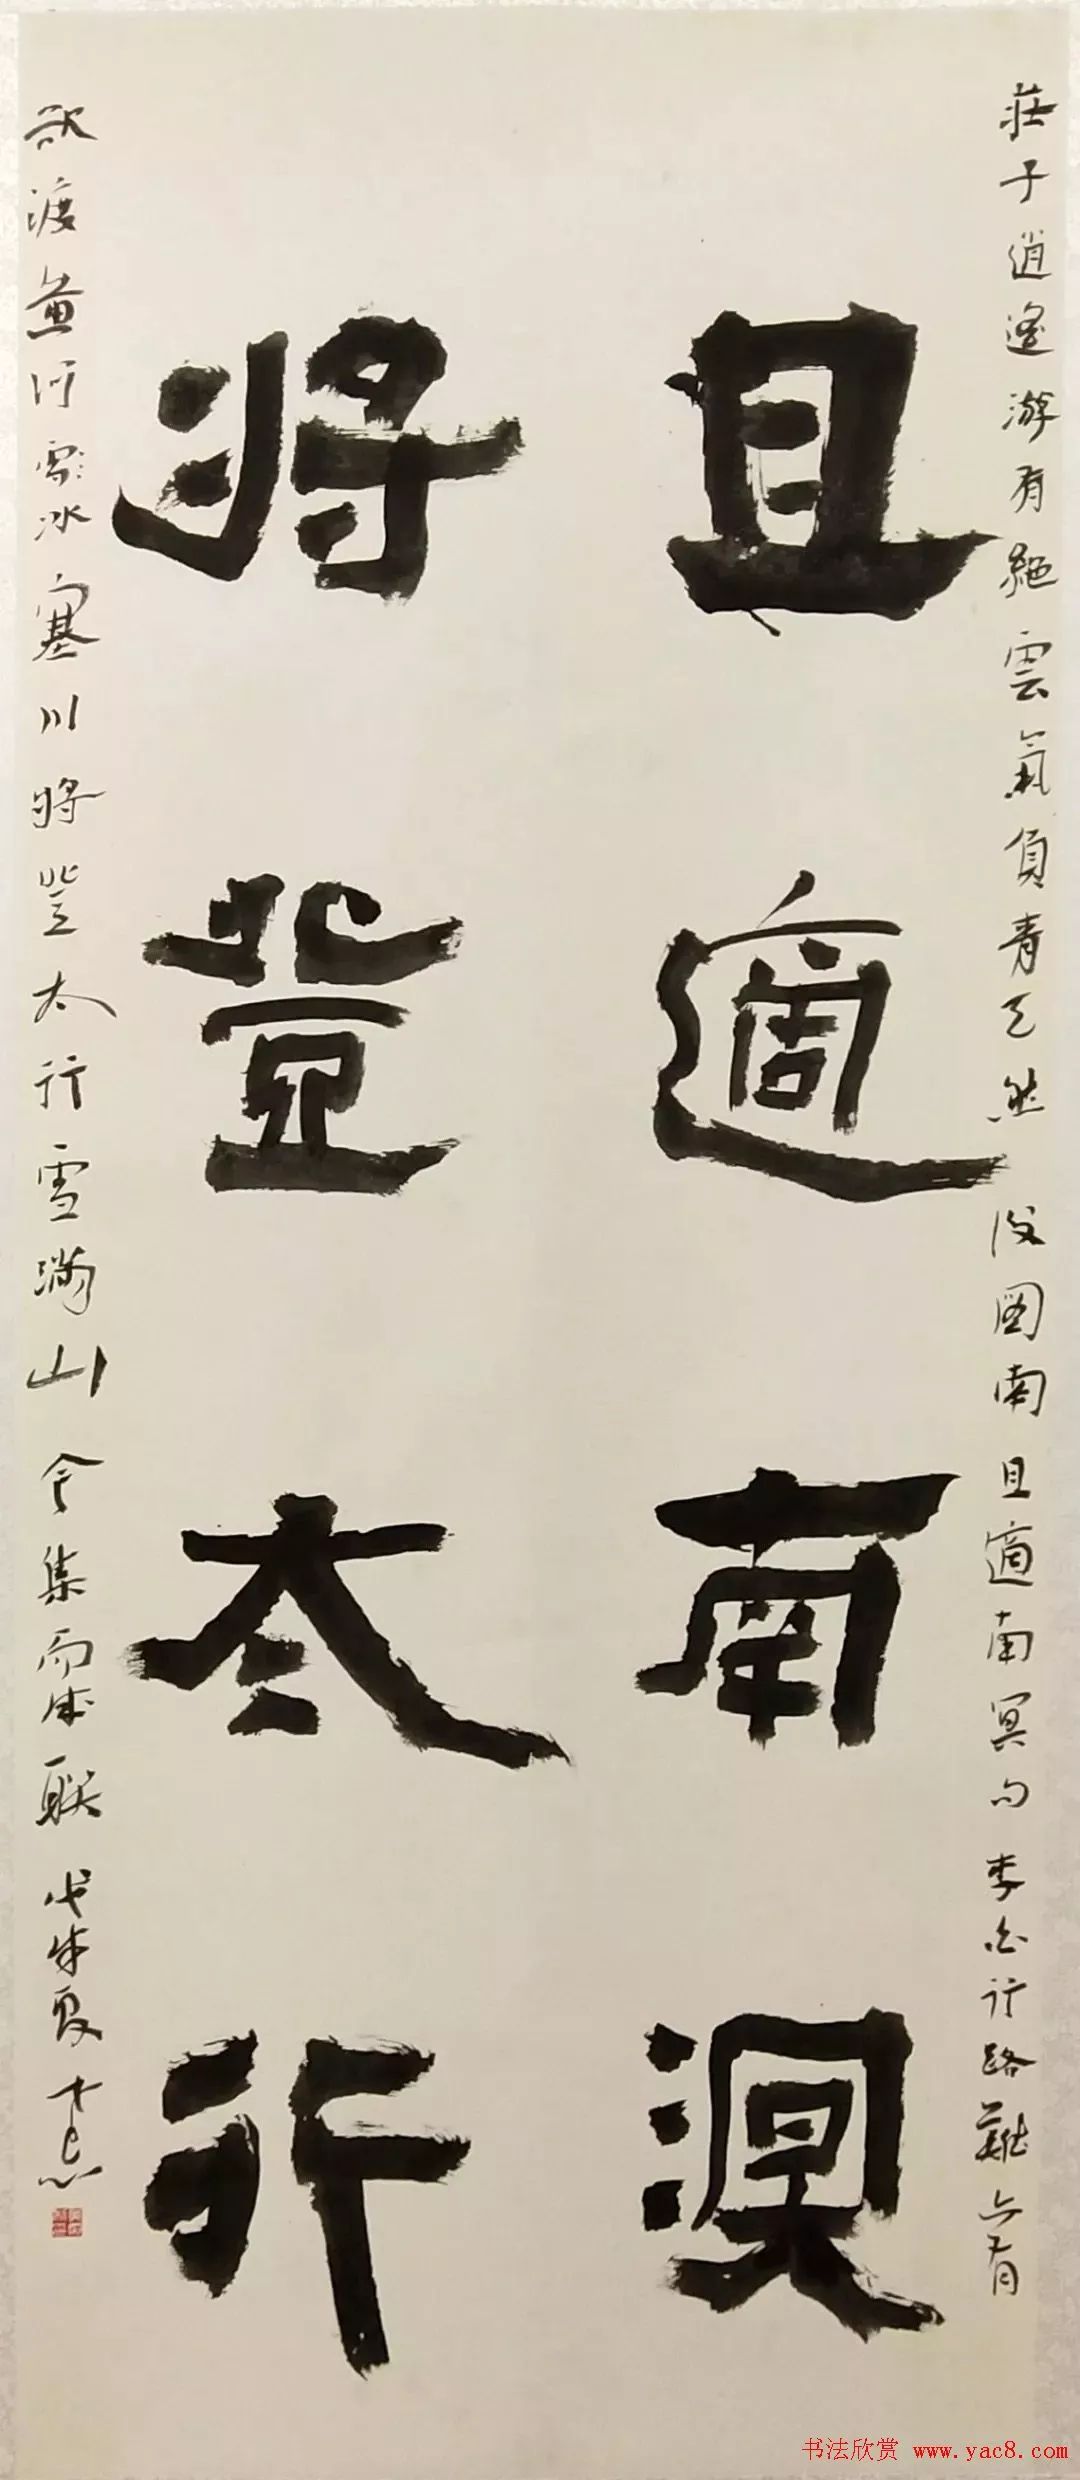 莊子逍遙游有絕雲氣負青天然後圖南且適南冥句李白行路難亦有
且適南溟
將登太行
欲渡黃河雪冰塞川將登太行雪滿山今集而成聯戊戌夏
书法欣赏 www.yac8.com